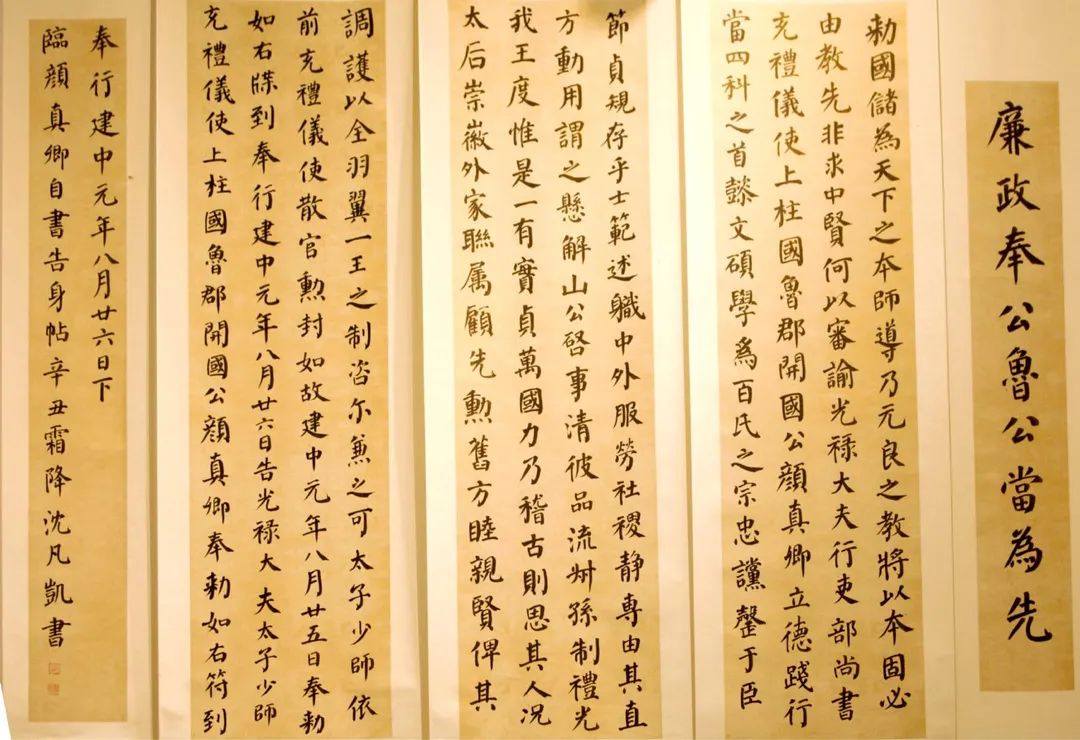 廉政奉公魯公當為先
勑國儲為天下之本師導乃元良之教將以本固必
由教先非求中賢何以審諭光禄大夫行吏部尚書
充禮儀使上柱國魯郡開國公顔真卿立德踐行
當四科之首懿文碩學爲百氏之宗忠讜罄于臣
節貞規存乎士範述職中外服勞社稷静専由其直
方動用謂之懸解山公啓事清彼品流叔孫制禮光
我王度惟是一有實貞萬國力乃稽古則思其人况
太后崇徽外家聯属顧先勳舊方睦親賢俾其
調護以全羽翼一王之制咨尔兼之可太子少師依
前充禮儀使散官勳封如故建中元年八月廿五日奉勑
如右牒到奉行建中元年八月廿六日告光禄大夫太子少師
充禮儀使上柱國魯郡開國公顔真卿奉勑如右符到
奉行建中元年八月廿六日下
臨顔真卿自書告身帖辛丑霜降沈凡凱書